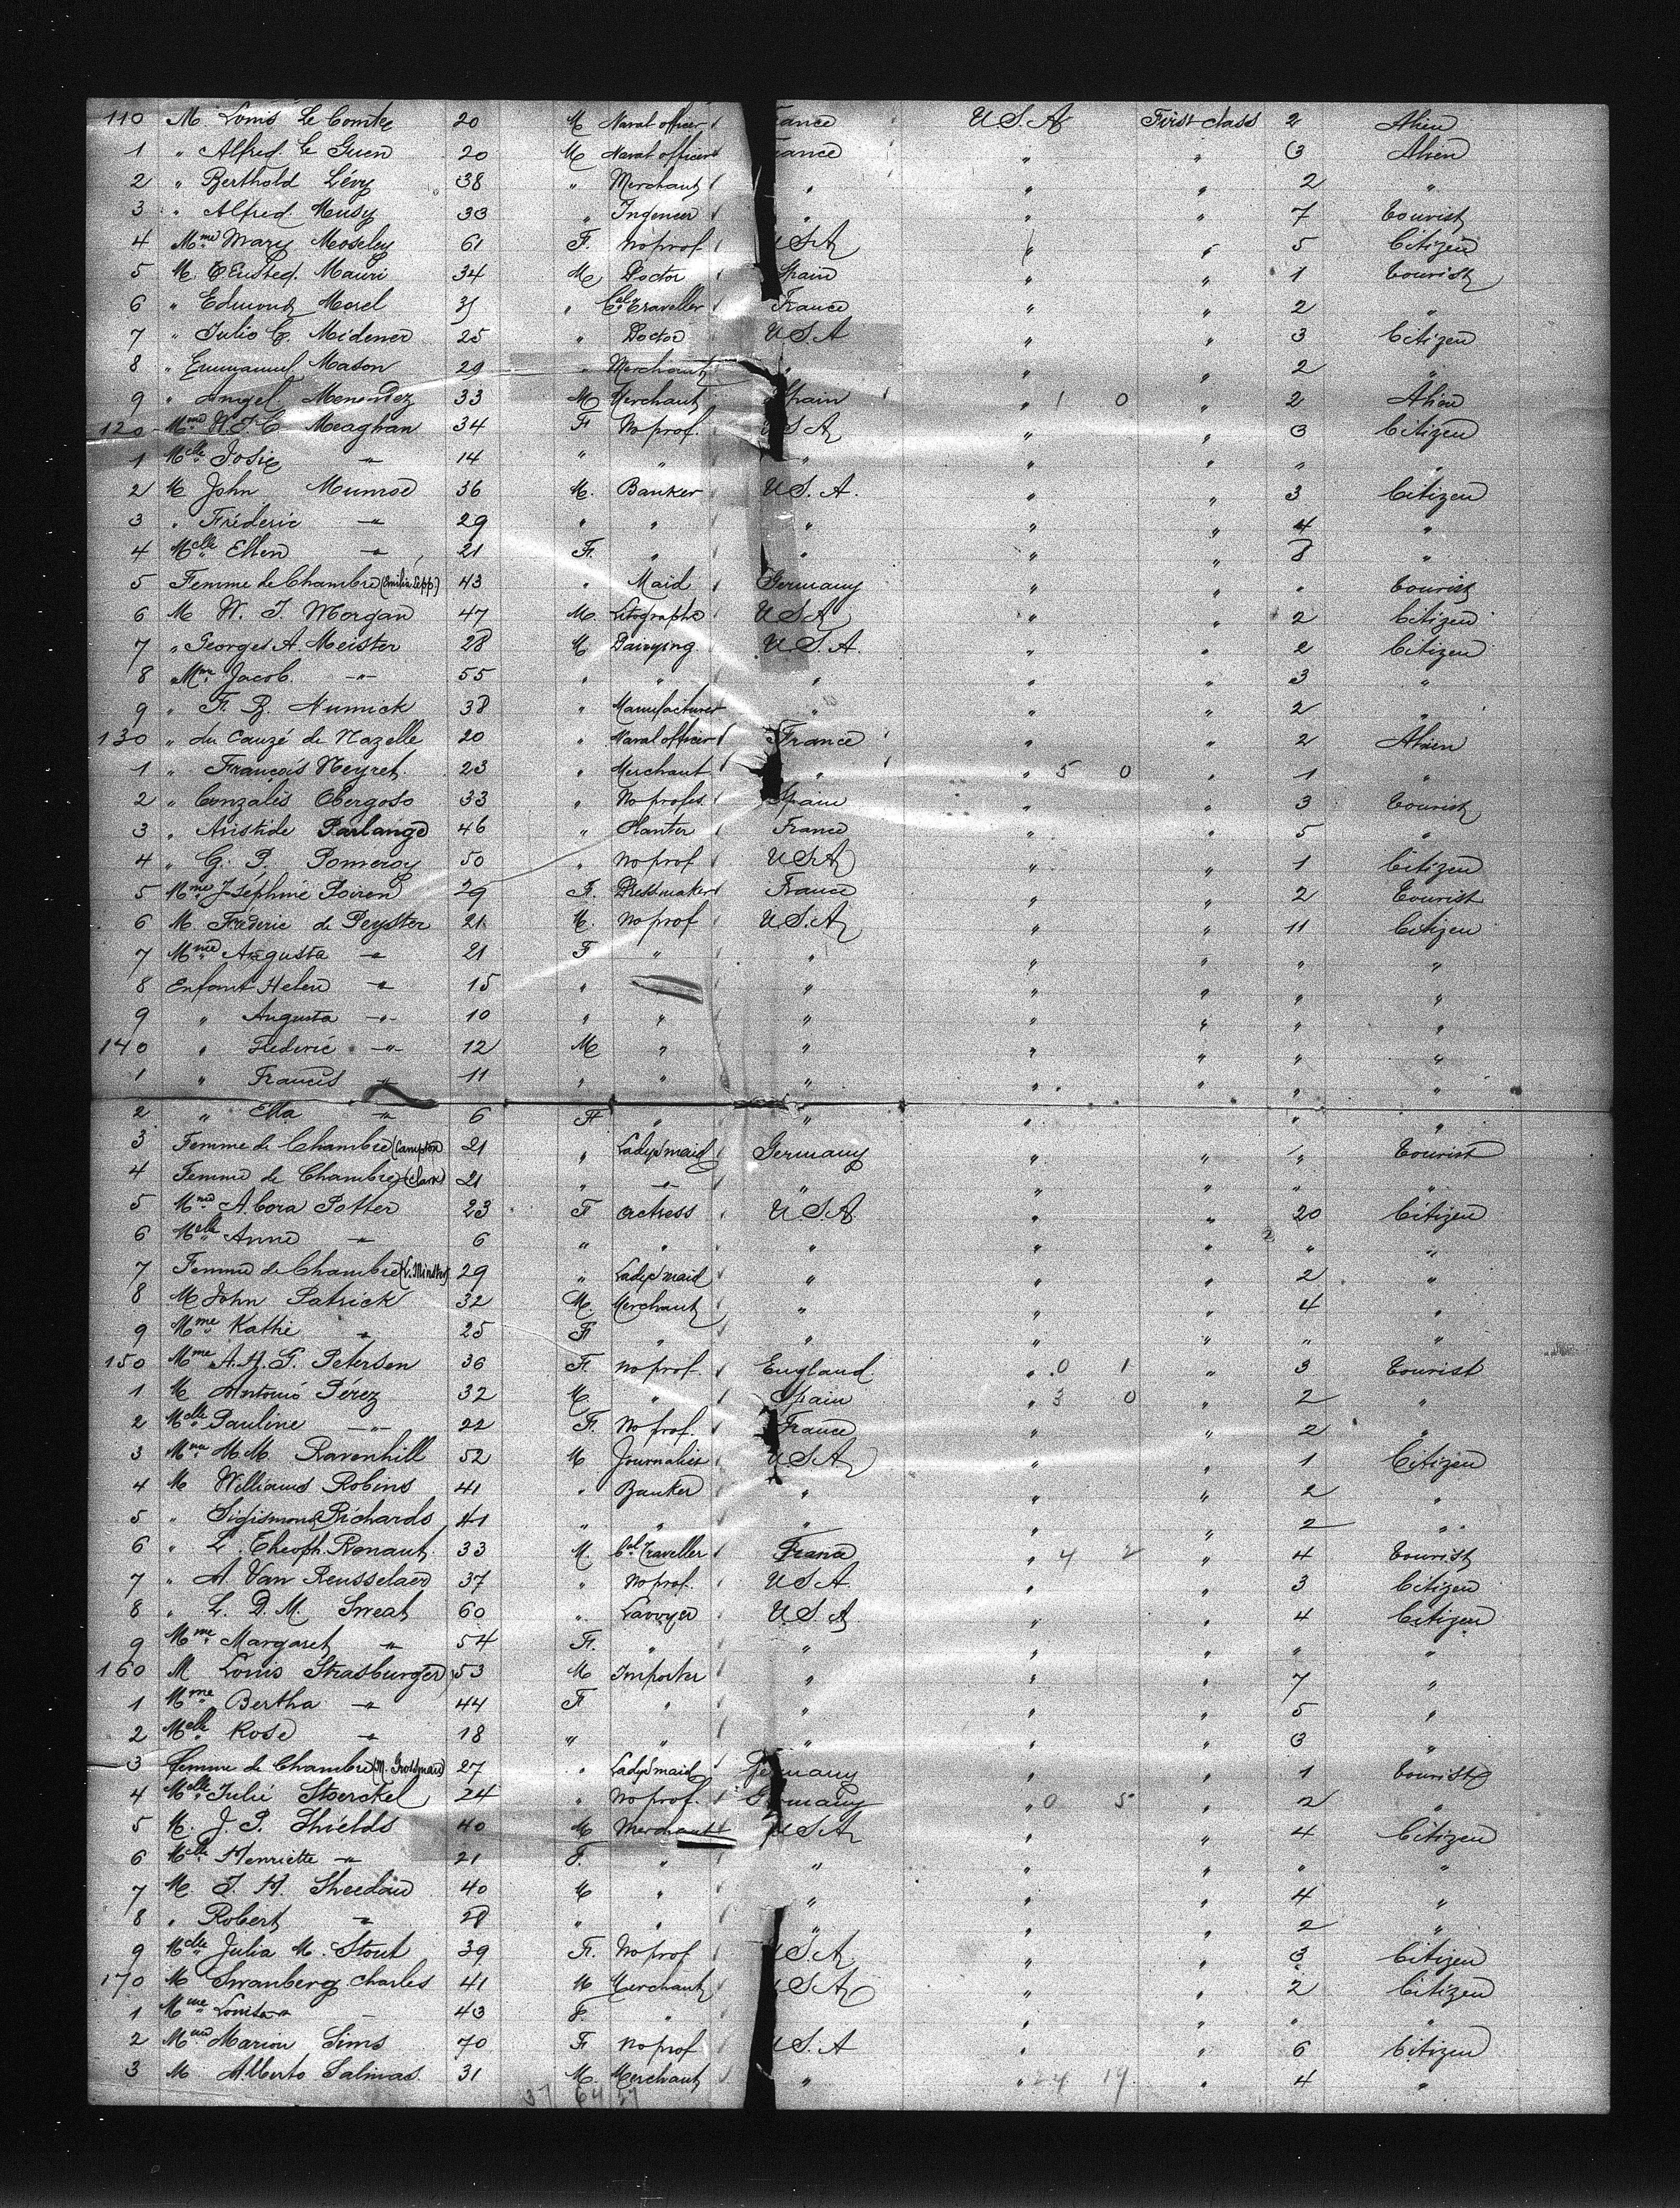 110 M Louis Le Comte 20 M Naval officer ance U.S.A First class 2 Alien
1 " Alfred Le Guen 20 M Naval officer ance " " 3 Alien
2 " Berthold Lévy 38 " Merchant " " " 2 "
3 " Alfred Musy 33 " Ingeneer " " " 7 tourist
4 Mme Mary Moseley 61 F. No prof. USA " " 5 Citizen
5 M. Mauri 34 M Doctor Spain " " 1 tourist
6 " Edmond Morel 35 " Cal traveller France " " 2 "
7 " Julio C. Midener 25 " Doctor U.S.A " " 3 Citizen
8 " Emmanuel Mason 29 " Merchant " " " 2 "
9 " Angel Menendez 33 M Merchant Spain " 1 0 " 2 Alien
120 Mme W.J.C Meaghan 34 F No prof. U S A " " 3 Citizen
1 Melle Josie " 14 " " " " " " "
2 M John Munroe 36 M. Banker U.S.A. " " 3 Citizen
3 " Fréderic " 29 " " " " " 4 "
4 Melle Ellen " 21 F. " " " " 8 "
5 Femme de Chambre (Emilie Sepp) 43 " Maid Germany " " " tourist
6 M W. J. Morgan 47 M. Litographe U S A " " 2 Citizen
7 " Georges A. Meister 28 M. Dairying U.S.A. " " 2 Citizen
8 Mme Jacob. " 55 " " " " " 3 "
9 " F. B. Numick 38 " Manufacturer " " " 2 "
130 " du Cauzé de Nazelle 20 " Naval officer France " " 2 Alien
1 " François Neyret 23 " Merchant " " 5 0 " 1 "
2 " Gonzalès Obergoso 33 " No profes. Spain " " 3 tourist
3 " Aristide Parlange 46 " Planter France " " 5 "
4 " G. P. Pomeroy 50 " No prof USA " " 1 Citizen
5 Mme Joséphine Poiren 29 F. Dressmaker France " " 2 Tourist
6 M. Fréderic de Peyster 21 M. No prof U.S.A " " 11 Citizen
7 Mme Augusta " 21 F " " " " " "
8 Enfant Helen " 15 " " " " " "
9 " Augusta " 10 " " " " " " "
140 " Frederic " 12 M " " " " " "
1 " Francis " 11 " " " " " " "
2 " Ella " 6 F " " " "
3 Femme de Chambre (Campton) 21 " Lady's maid Germany " " " Tourist
4 Femme de Chambre (Clark) 21 " " " " " " "
5 Mme A. Cora Potter 23 F actress U.S.A. " " 20 Citizen
6 Melle Anne " 6 " " " " " 2 " "
7 Femme de Chambre 29 " Lady's maid " " " 2 "
8 M John Patrick 32 M. Merchant " " " 4 "
9 Mme Kathe " 25 F " " " " " "
150 Mme A.H.G. Petersen 36 F. No prof. England " 0 1 " 3 Tourist
1 M Antonio Pérez 32 M " Spain " 3 0 " 2 "
2 Melle Pauline " 22 F. No prof. France " " 2 "
3 Mme M.M. Ravenhill 52 M Journalist U.S.A. " " 1 Citizen
4 M Williams Robins 41 " Banker " " " 2 "
5 " Sigismond Richards 41 " " " " " 2 "
6 " L. Theoph. Renaut 33 M. Cal Traveller France " 4 2 " 4 tourist
7 " A. Van Rensselaer 37 " No prof. U.S.A. " " 3 Citizen
8 " L. D. M. Sweat 60 " Lawyer U.S.A " " 4 Citizen
9 Mme Margaret " 54 F. " " " " " "
160 M Louis Strasburger 53 M Importer " " " 7 "
1 Mme Bertha " 44 F " " " " 5 "
2 Melle Rose " 18 " " " " " 3 "
3 Femme de Chambre (M. Grossman) 27 " Lady's maid Germany " " 1 tourist
4 Melle Julie Stoerckel 24 " No prof. Germany " 0 5 " 2 "
5 M. J. P. Shields 40 M Merchant USA " " 4 Citizen
6 Melle Henriette " 21 F. " " " " " "
7 M J. H. Sheedan 40 M " " " " 4 "
8 " Robert " 28 " " " " " 2 "
9 Melle Julia M. Stout 39 F. No prof U.S.A. " " 3 Citizen
170 M Swanberg Charles 41 M Merchant USA " " 2 Citizen
1 Mme Louisa " 43 F. " " " " "
2 Mme Marion Sims 70 F No prof U.S.A " " 6 Citizen
3 M Alberto Salinas. 31 M. Merchant " " 24 19 " 4 "
37 64 27